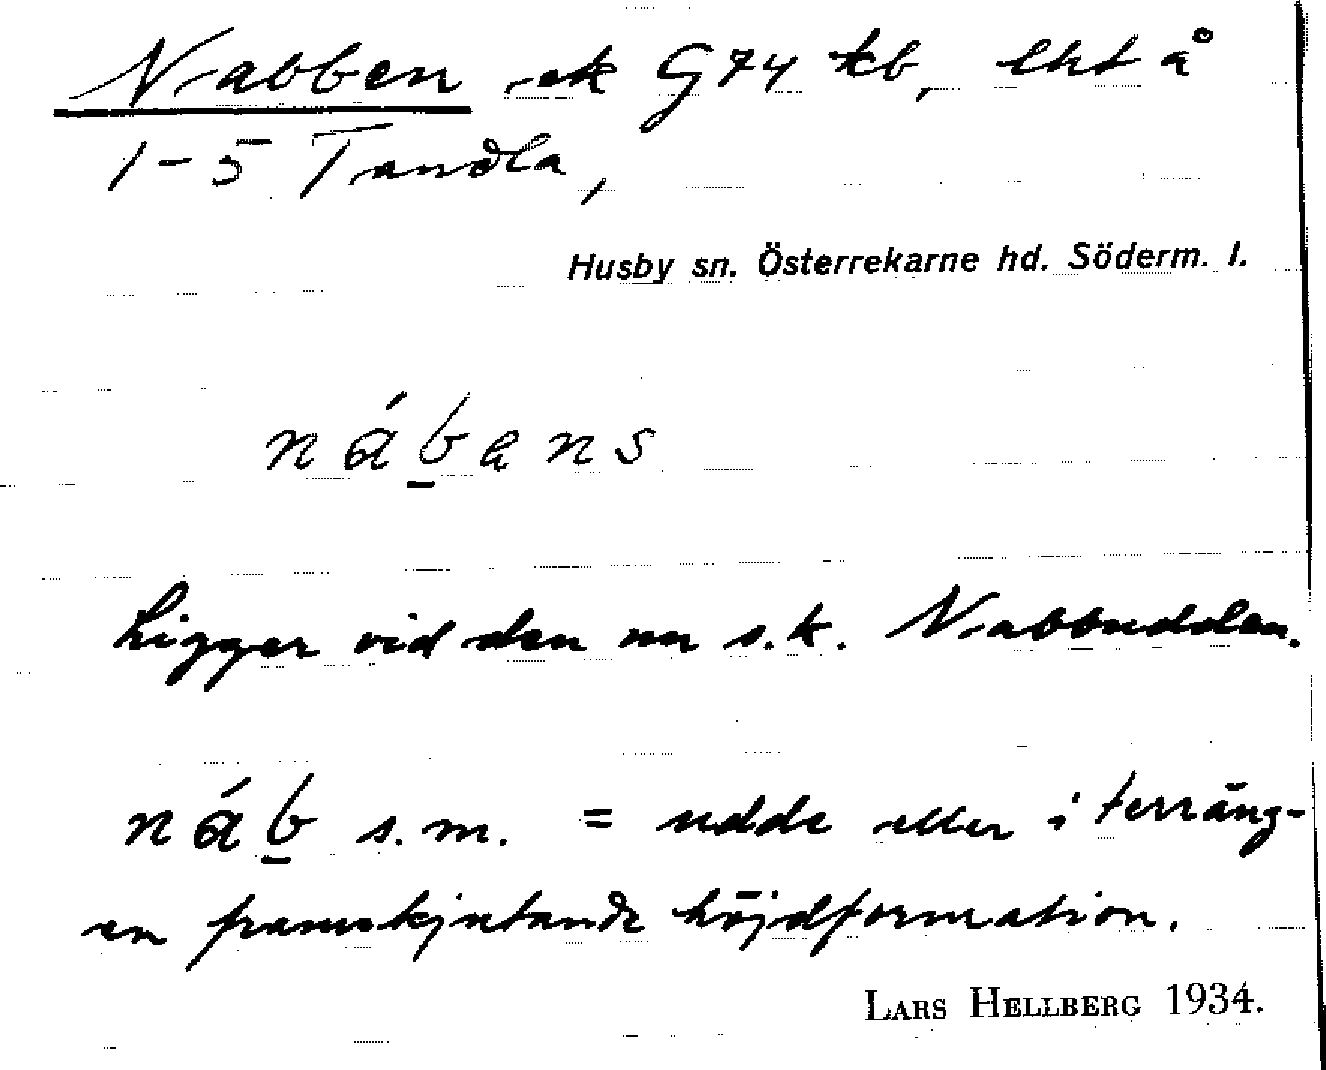 Nabben ek G74 kb, lht å
1-5 Tandla,
Husby sn. Österrekarne hd. Söderm. l.
náb̲ans
Ligger vid den nu s.k. Nabbudden.
náb̲ s.m. = udde eller i terräng-
en framskjutande höjdformation.
LARS HELLBERG 1934.